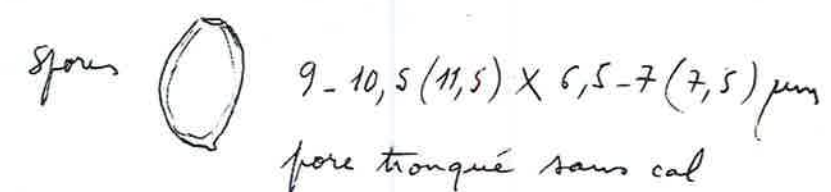 spores 9-10,5(11,5) X 6,5-7(7,5) µm
pore tronqué sans cal